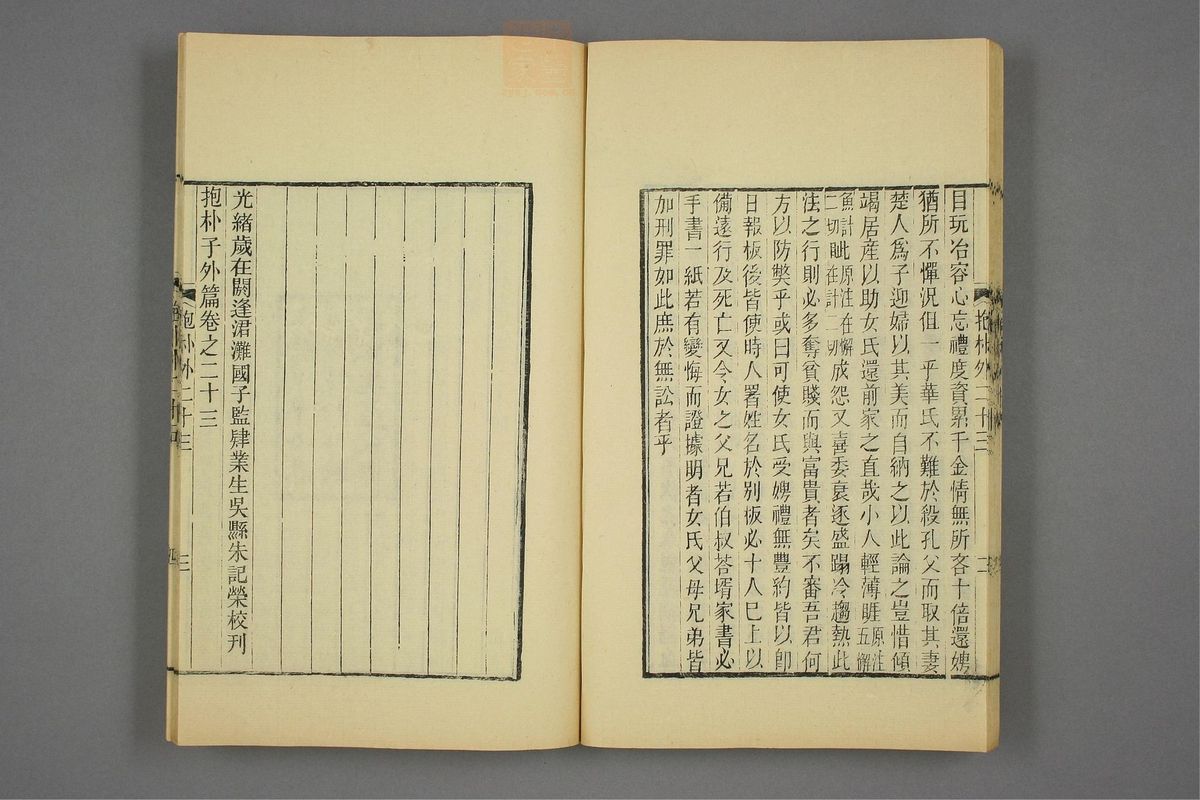 抱朴外二十三
二
目玩冶容心忘禮度資累千金情無所吝十倍還娉
猶所不憚況但一乎華氏不難於殺孔父而取其妻
楚人爲子迎婦以其美而自納之以此論之豈惜傾
竭居産以助女氏還前家之直哉小人輕薄睚原注五懈
魚計此原注在懈二切眦在計二切成怨又喜委衰逐盛蹋冷趨熱此
法之行則必多奪貧賤而與富貴者矣不審吾君何
方以防弊乎或曰可使女氏受娉禮無豐約皆以即
日報板後皆使時人署姓名於別板必十人巳上以
備遠行及死亡又令女之父兄若伯叔荅壻家書必
手書一紙若有變悔而證據明者女氏父母兄弟皆
加刑罪如此庶於無訟者乎
光緒歲在閼逢涒灘國子監肄業生吳縣朱記榮校刊
抱朴子外篇卷之二十三
抱朴外二十三
三